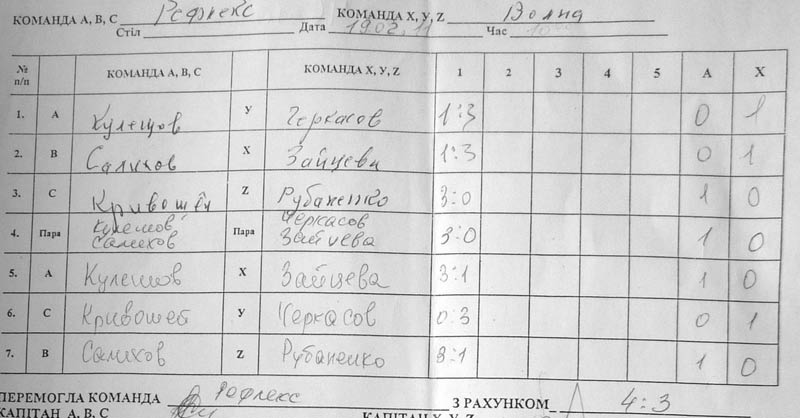 КОМАНДА А, В, С Рефлекс КОМАНДА X, У, Z Волна
Стіл Дата 19.02.11 Час
№ п/п КОМАНДА А, В, С КОМАНДА X, У, Z 1 2 3 4 5 А X
1. А Кулешов У Черкасов 1:3 0 1
2. В Салихов X Зайцева 1:3 0 1
3. С Кривошей Z Рубаненко 3:0 1 0
4. Пара Кулешов Салихов Пара Черкасов Зайцева 3:0 1 0
5. А Кулешов X Зайцева 3:1 1 0
6. С Кривошей У Черкасов 0:3 0 1
7. В Салихов Z Рубаненко 3:1 1 0
ПЕРЕМОГЛА КОМАНДА Рефлекс З РАХУНКОМ 4:3
КАПІТАН А, В, С КАПІТАН X, У, Z